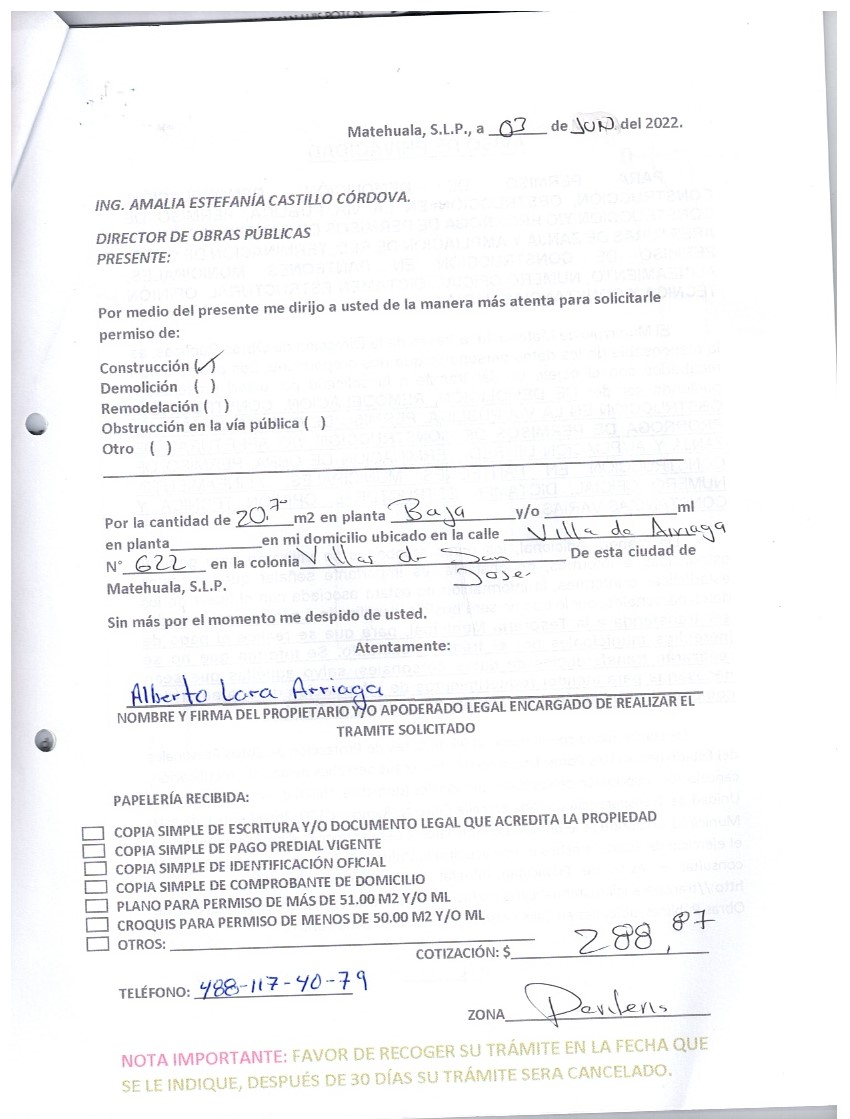 Matehuala, S.L.P., a 03 de JUN. del 2022.
ING. AMALIA ESTEFANÍA CASTILLO CÓRDOVA.
DIRECTOR DE OBRAS PÚBLICAS
PRESENTE:
Por medio del presente me dirijo a usted de la manera más atenta para solicitarle
permiso de:
Construcción (✓)
Demolición ( )
Remodelación ( )
Obstrucción en la vía pública ( )
Otro ( )
Por la cantidad de 20.70 m2 en planta Baja y/o ml
en planta en mi domicilio ubicado en la calle Villa de Arriaga
N° 622 en la colonia Villas de San Jose De esta ciudad de
Matehuala, S.L.P.
Sin más por el momento me despido de usted.
Atentamente:
Alberto Lara Arriaga
NOMBRE Y FIRMA DEL PROPIETARIO Y/O APODERADO LEGAL ENCARGADO DE REALIZAR EL
TRAMITE SOLICITADO
PAPELERÍA RECIBIDA:
COPIA SIMPLE DE ESCRITURA Y/O DOCUMENTO LEGAL QUE ACREDITA LA PROPIEDAD
COPIA SIMPLE DE PAGO PREDIAL VIGENTE
COPIA SIMPLE DE IDENTIFICACIÓN OFICIAL
COPIA SIMPLE DE COMPROBANTE DE DOMICILIO
PLANO PARA PERMISO DE MÁS DE 51.00 M2 Y/O ML
CROQUIS PARA PERMISO DE MENOS DE 50.00 M2 Y/O ML
OTROS:
COTIZACIÓN: $ 288.87
TELÉFONO: 488-117-40-79
ZONA
NOTA IMPORTANTE: FAVOR DE RECOGER SU TRÁMITE EN LA FECHA QUE
SE LE INDIQUE, DESPUÉS DE 30 DÍAS SU TRÁMITE SERA CANCELADO.